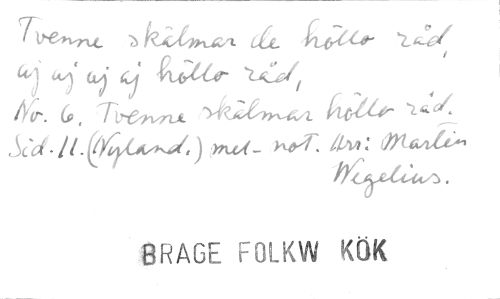 Tvenne skälmar de höllo råd,
aj aj aj aj höllo råd,
No. 6. Tvenne skälmar höllo råd.
Sid. 11. (Nyland.) mel- not. Arr: Martin
Wegelius.
BRAGE FOLKW KÖK